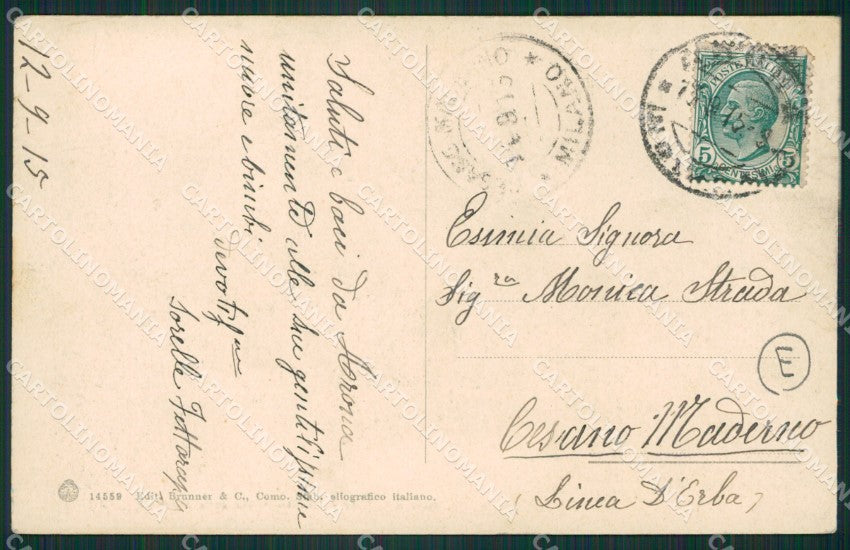 12-9-15
Saluti e baci da Arona
unitamente alle sue gentilissime
suore e bimbi
devotiss.me
Sorelle
MILANO
POSTE ITALIANE
5 5
CENTESIMI
Esimia Signora
Sig.ra Monica Strada
E
Cesano Maderno
(Linea d'Erba)
14559 Edit. Brunner & C., Como. Stab. eliografico italiano.
CARTOLINOMANIA